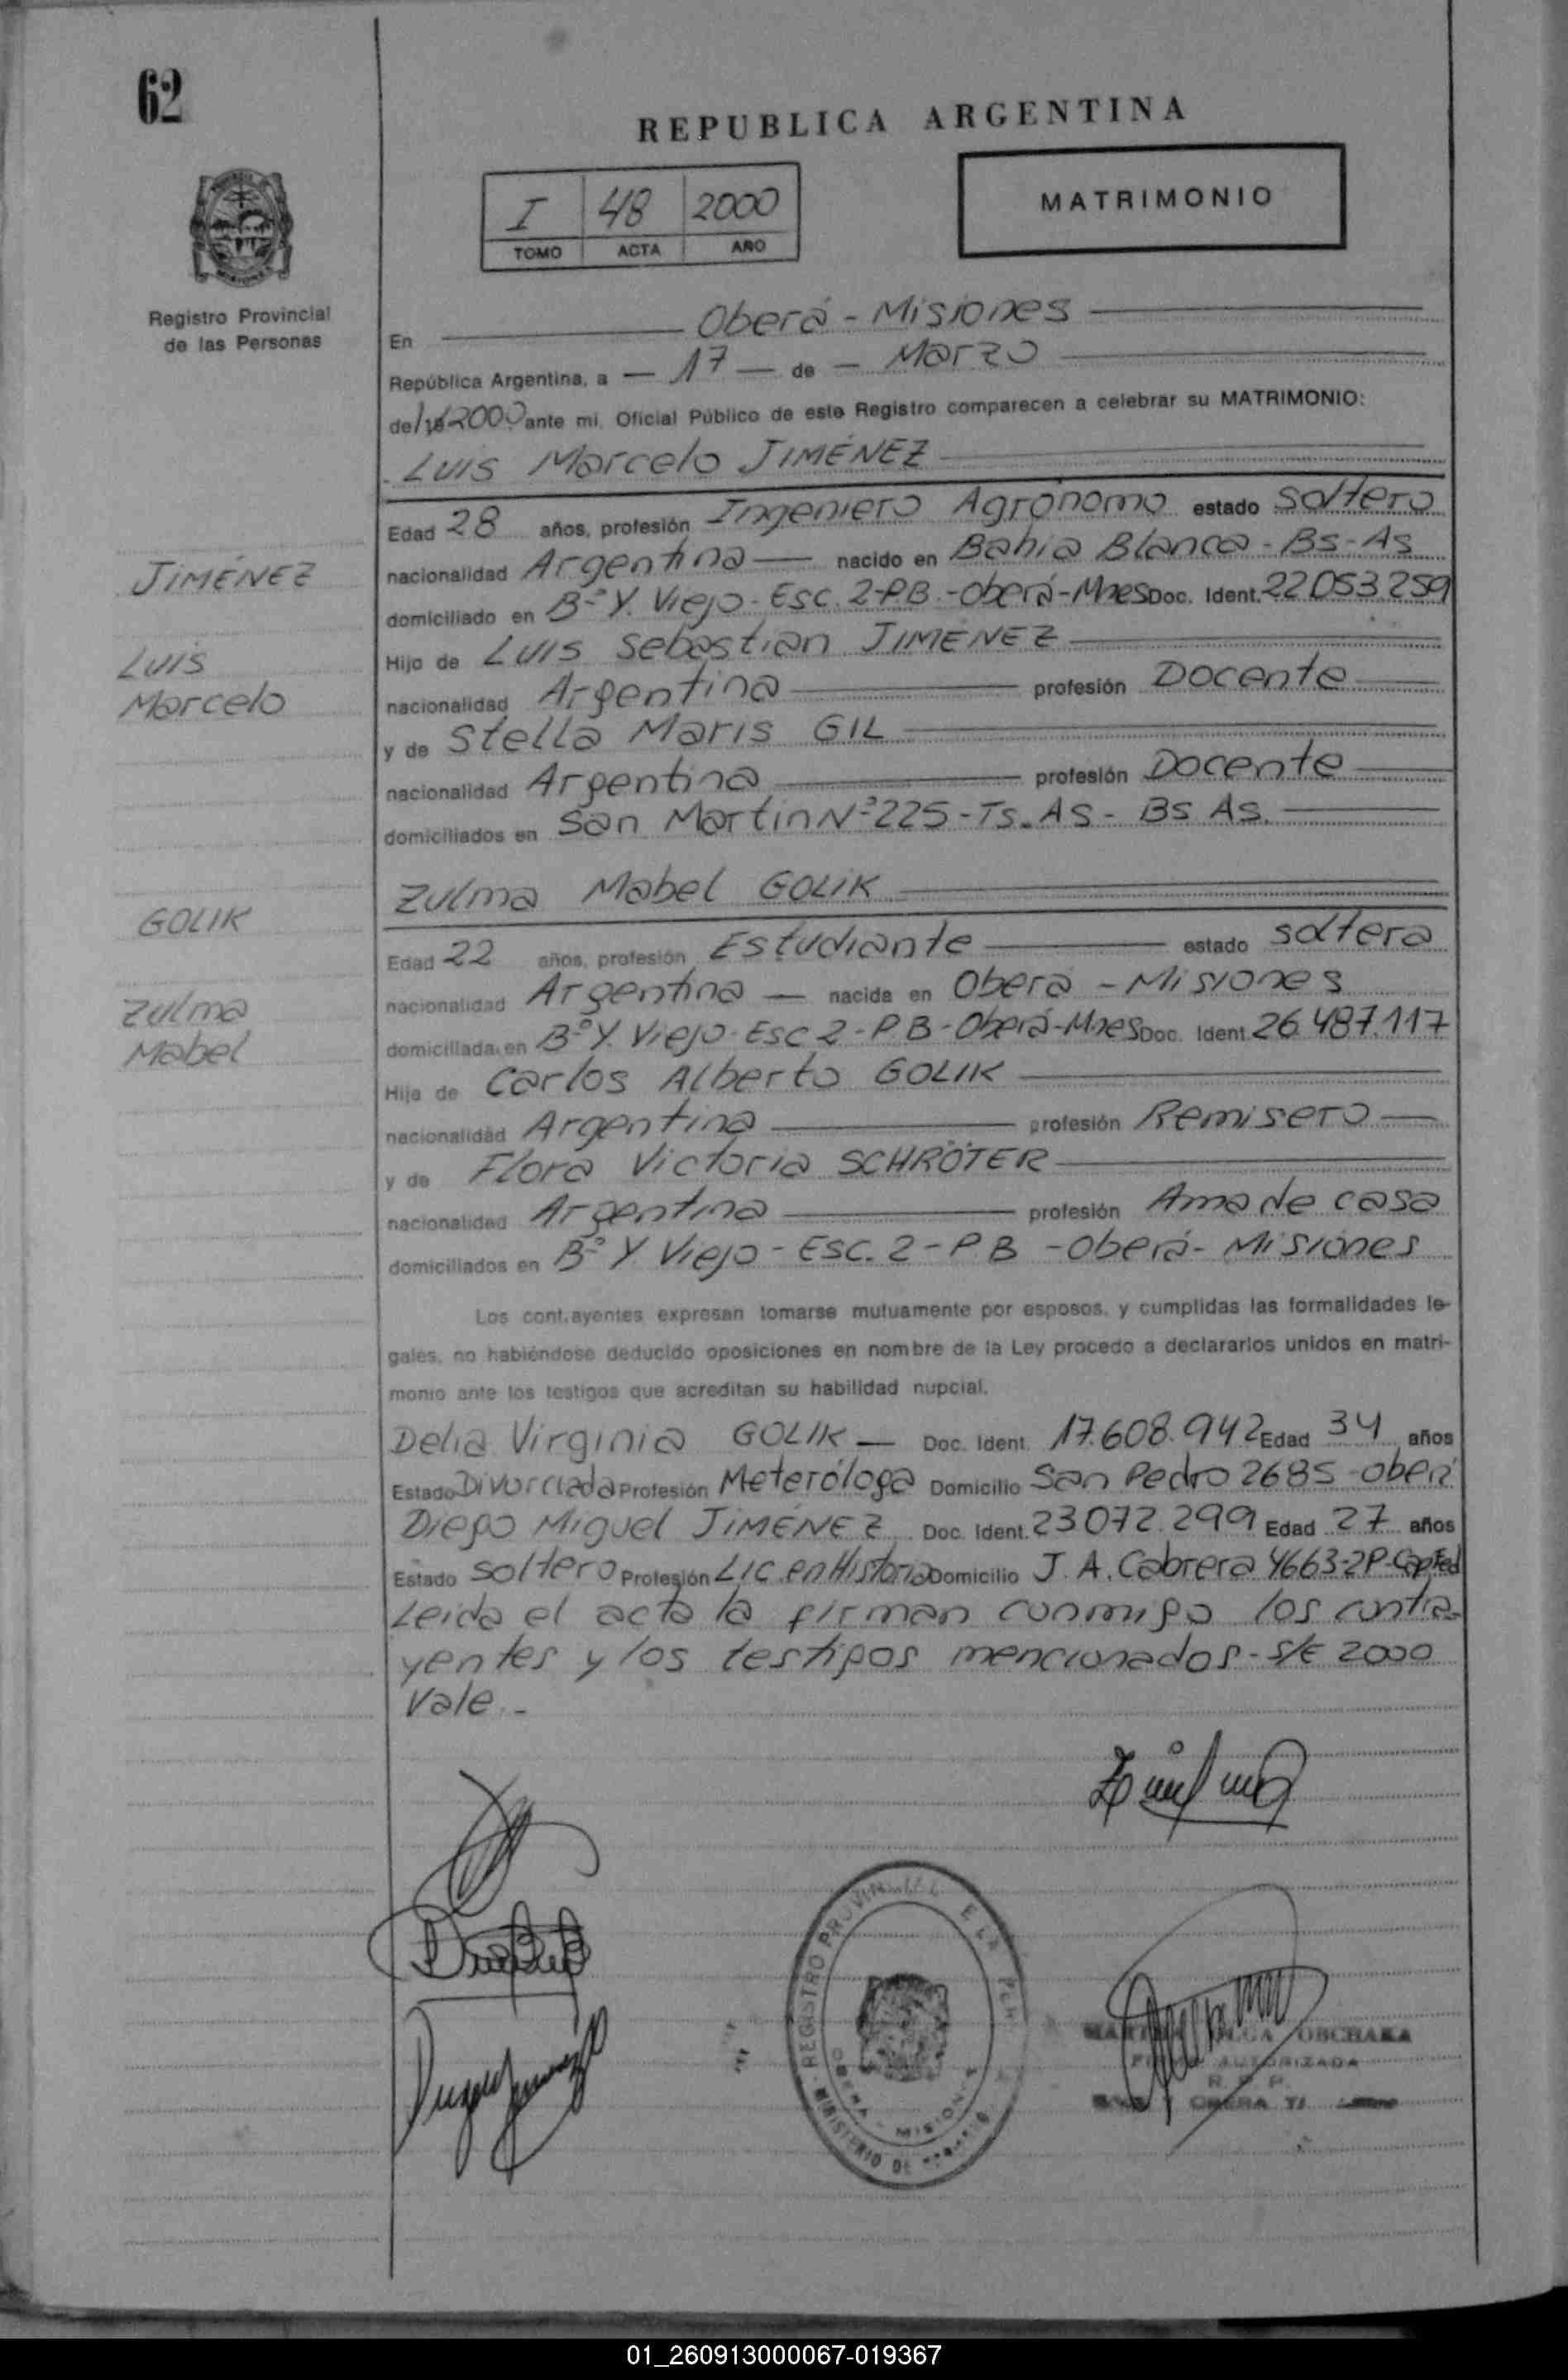 62
REPUBLICA ARGENTINA
I 48 2000
TOMO ACTA AÑO
MATRIMONIO
Registro Provincial
de las Personas
En Oberá - Misiones
República Argentina, a - 17 - de - Marzo
del 2000 ante mi, Oficial Público de este Registro comparecen a celebrar su MATRIMONIO:
Luis Marcelo JIMÉNEZ
Edad 28 años, profesión Ingeniero Agrónomo estado soltero
JIMÉNEZ
nacionalidad Argentina nacido en Bahía Blanca - Bs - As
domiciliado en Bº Y. Viejo - Esc. 2 - P.B. - Oberá - Mnes Doc. Ident. 22.053.259
Luis
Hijo de Luis Sebastian JIMÉNEZ
Marcelo
nacionalidad Argentina profesión Docente
y de Stella Maris GIL
nacionalidad Argentina profesión Docente
domiciliados en San Martin Nº 225 - Ts. As - Bs As.
Zulma Mabel GOLIK
GOLIK
Edad 22 años, profesión Estudiante estado soltera
Zulma
nacionalidad Argentina - nacida en Oberá - Misiones
Mabel
domiciliada en Bº Y. Viejo - Esc 2 - P.B - Oberá - Mnes Doc. Ident. 26.487.117
Hija de Carlos Alberto GOLIK
nacionalidad Argentina profesión Remisero
y de Flora Victoria SCHRÖTER
nacionalidad Argentina profesión Ama de casa
domiciliados en Bº Y. Viejo - Esc. 2 - P.B - Oberá - Misiones
Los contrayentes expresan tomarse mutuamente por esposos, y cumplidas las formalidades le-
gales, no habiéndose deducido oposiciones en nombre de la Ley procedo a declararlos unidos en matri-
monio ante los testigos que acreditan su habilidad nupcial.
Delia Virginia GOLIK - Doc. Ident. 17.608.942 Edad 34 años
Estado Divorciada Profesión Meteróloga Domicilio San Pedro 2685 - Oberá
Diego Miguel JIMÉNEZ Doc. Ident. 23072.299 Edad 27 años
Estado soltero Profesión Lic. en Historia Domicilio J. A. Cabrera 4663-2P-Cap.Fed
Leida el acta la firman conmigo los contra-
yentes y los testigos mencionados - S/E 2000
Vale.-
REGISTRO PROVINCIAL
OBERA - MISIONES
MINISTERIO DE
OLGA OBCHAKA
AUTORIZADA
OBERA
01_260913000067-019367